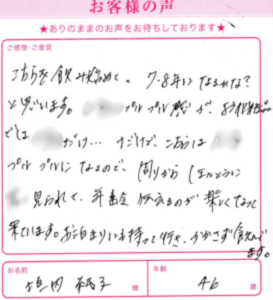 お客様の声
★ありのままのお声をお待ちしております★
ご感想・ご意見
こちらを飲み始めて。7-8年になるかな?
と思います。 プルプル感が、
では だけ… すごけど、こちらは
プルプルになるので、周りから
見られて、年齢伝えるのが楽しくなって
来ています。お泊まりにも持って行き、かかさず飲んで
ます。
お名前
様
年齢
46 歳